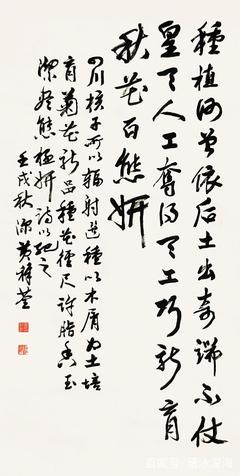 種植何曾依后土出奇端不仗
皇天人工奪得天工巧新育
秋花百態妍
四川核子所以輻射選種以木屑為土培
育菊花新品種花徑尺許脂香玉
潔盡態極妍詩以記之
壬戌秋深黃稚荃